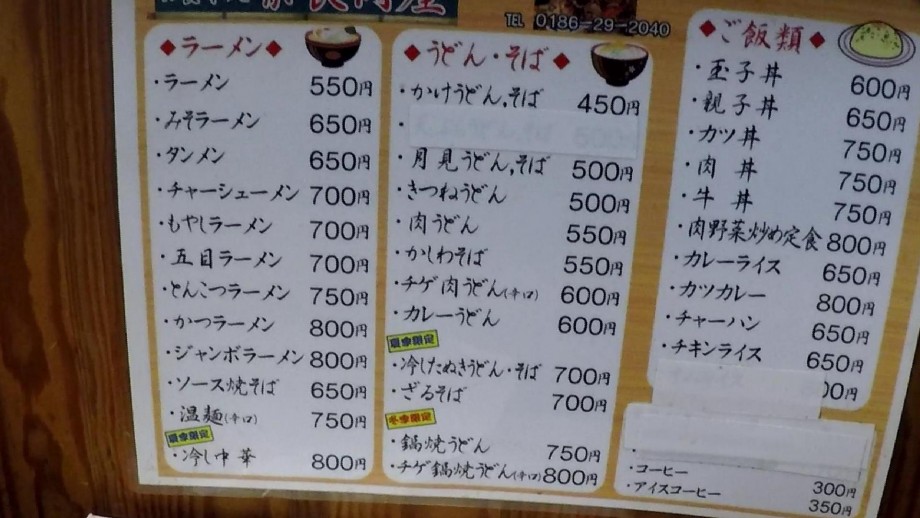 TEL 0186-29-2040
◆ラーメン◆
・ラーメン 550円
・みそラーメン 650円
・タンメン 650円
・チャーシューメン 700円
・もやしラーメン 700円
・五目ラーメン 700円
・とんこつラーメン 750円
・かつラーメン 800円
・ジャンボラーメン 800円
・ソース焼そば 650円
・温麺(辛口) 750円
夏季限定
・冷し中華 800円
◆うどん・そば◆
・かけうどん,そば 450円
・月見うどん,そば 500円
・きつねうどん 500円
・肉うどん 550円
・かしわそば 550円
・チゲ肉うどん(辛口) 600円
・カレーうどん 600円
夏季限定
・冷したぬきうどん・そば 700円
・ざるそば 700円
冬季限定
・鍋焼うどん 750円
・チゲ鍋焼うどん(辛口) 800円
◆ご飯類◆
・玉子丼 600円
・親子丼 650円
・カツ丼 750円
・肉丼 750円
・牛丼 750円
・肉野菜炒め定食 800円
・カレーライス 650円
・カツカレー 800円
・チャーハン 650円
・チキンライス 650円
・コーヒー 300円
・アイスコーヒー 350円